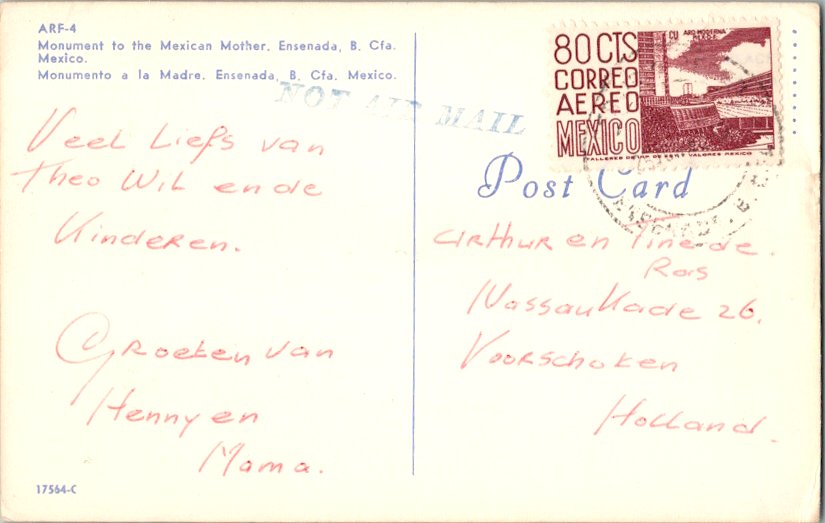 ARF-4
Monument to the Mexican Mother. Ensenada, B. Cfa.
Mexico.
Monumento a la Madre. Ensenada, B. Cfa. Mexico.
NOT AIR MAIL
80 CTS
CORREO
AEREO
MEXICO
CU ARQ. MODERNA
MEX. D.F.
TALLERES DE IMP. DE EST. Y VALORES MEXICO
Post Card
Veel Liefs van
Theo Wil en de
Kinderen.
Groeten van
Henny en
Mama.
Arthur en Tine de.
Ras
Nassaukade 26.
Voorschoten
Holland.
17564-C